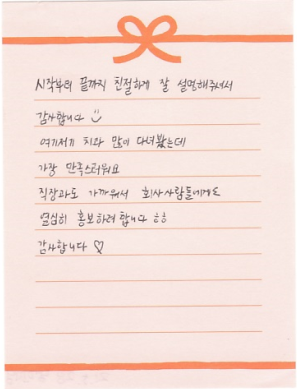 시작부터 끝까지 친절하게 잘 설명해주셔서
감사합니다 :)
여기저기 치과 많이 다녀봤는데
가장 만족스러워요
직장과도 가까워서 회사사람들에게도
열심히 홍보하려 합니다 ㅎㅎ
감사합니다 ♡